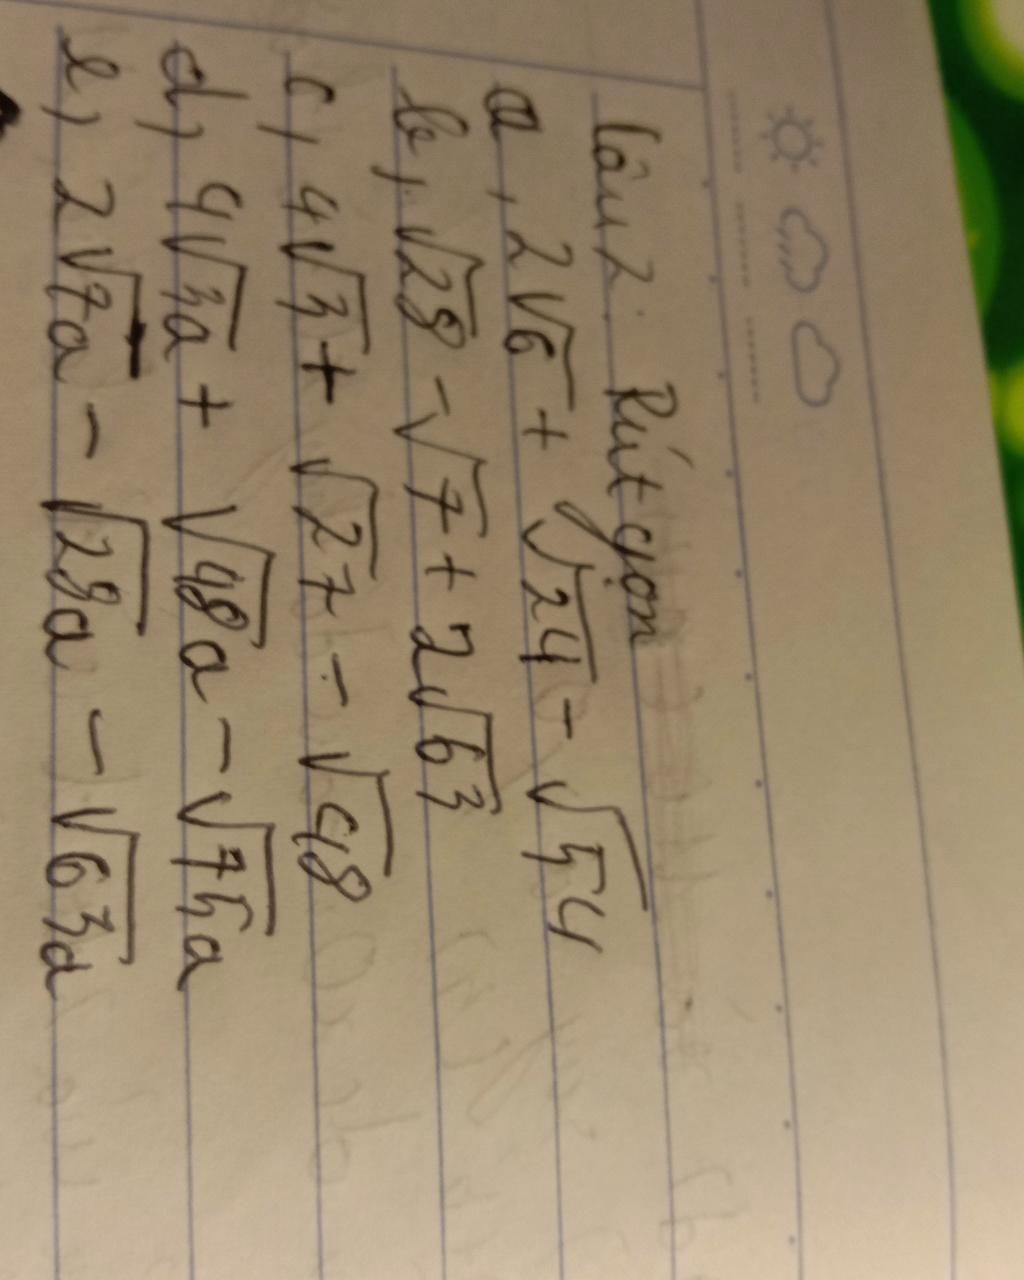 Câu 2: Rút gọn
a, 2√6 + √24 - √54
b, √28 - √7 + 2√63
c, 4√3 + √27 - √48
d, 4√3a + √48a - √75a
e, 2√7a - √28a - √63a